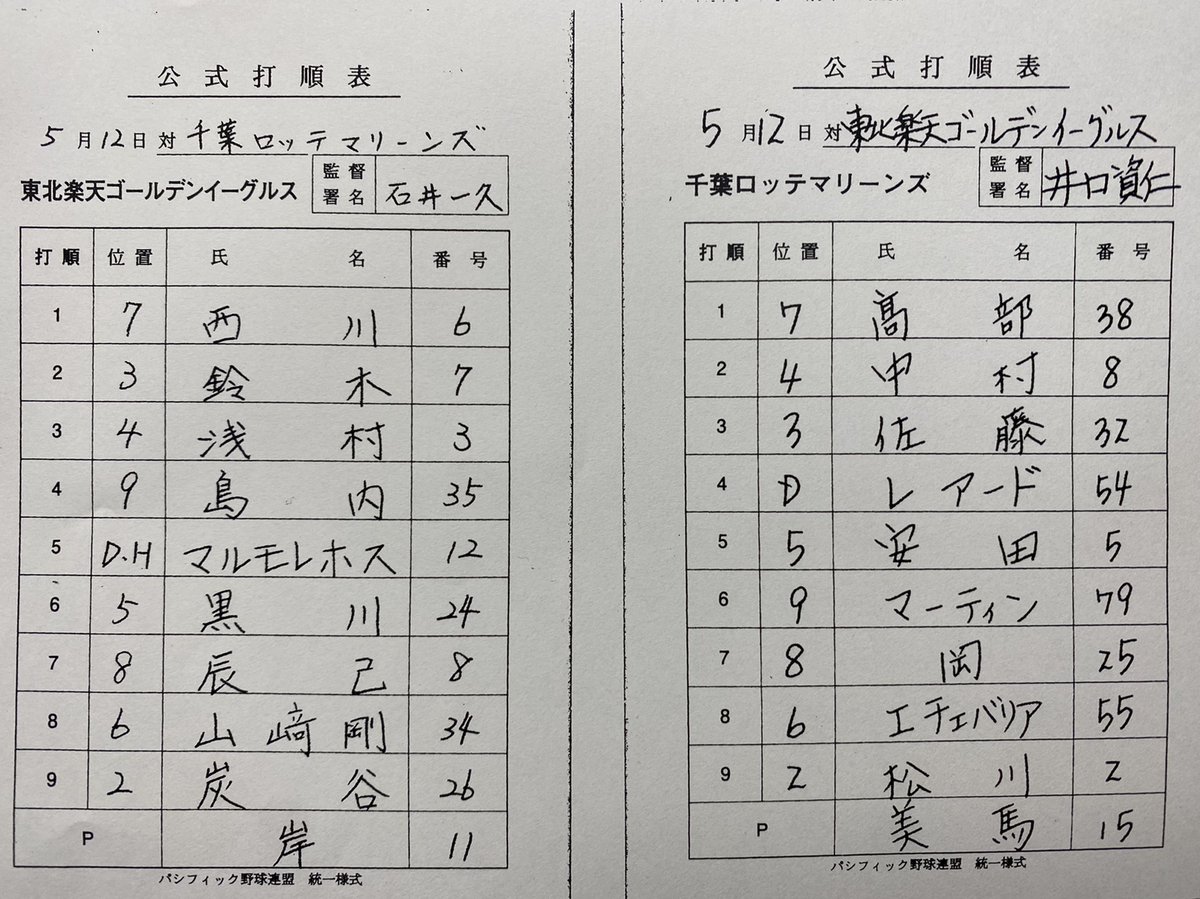 公式打順表
5月12日対千葉ロッテマリーンズ
東北楽天ゴールデンイーグルス 監督署名 石井一久
打順 位置 氏名 番号
1 7 西川 6
2 3 鈴木 7
3 4 浅村 3
4 9 島内 35
5 D.H マルモレホス 12
6 5 黒川 24
7 8 辰己 8
8 6 山﨑剛 34
9 2 炭谷 26
P 岸 11
パシフィック野球連盟 統一様式
公式打順表
5月12日対東北楽天ゴールデンイーグルス
千葉ロッテマリーンズ 監督署名 井口資仁
打順 位置 氏名 番号
1 7 髙部 38
2 4 中村 8
3 3 佐藤 32
4 D レアード 54
5 5 安田 5
6 9 マーティン 79
7 8 岡 25
8 6 エチェバリア 55
9 2 松川 2
P 美馬 15
パシフィック野球連盟 統一様式